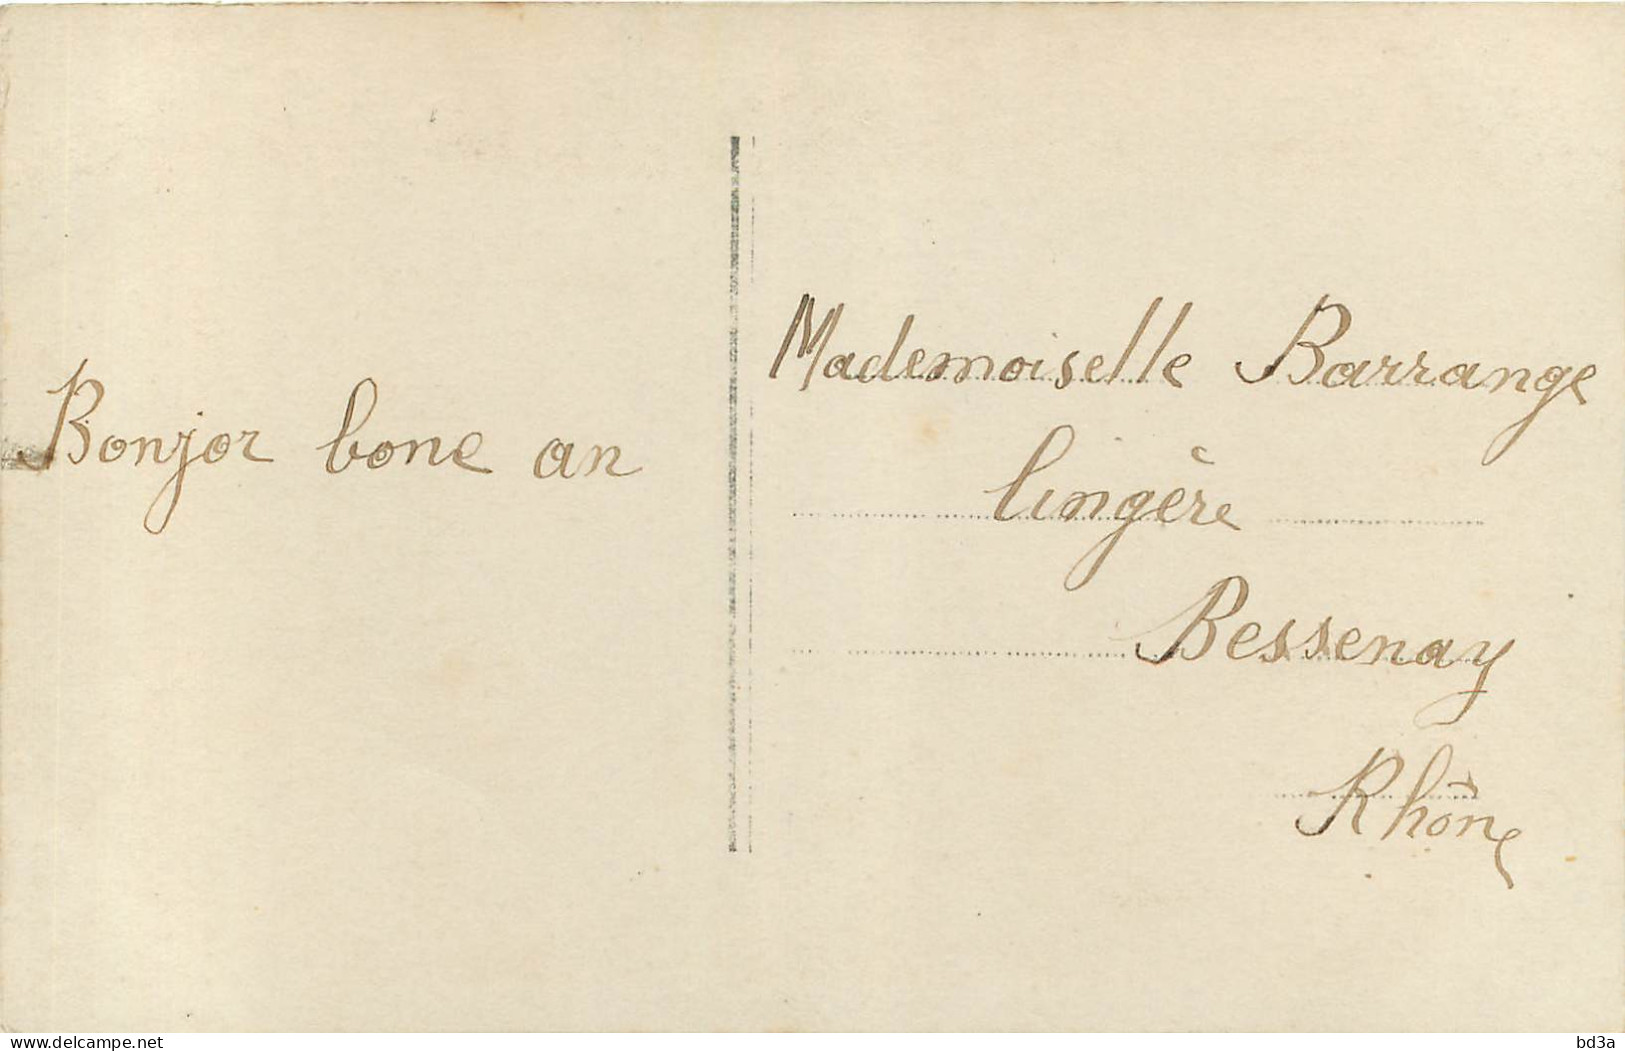 Bonjor bone an
Mademoiselle Barrange
lingère
Bessenay
Rhône
www.delcampe.net
bd3a